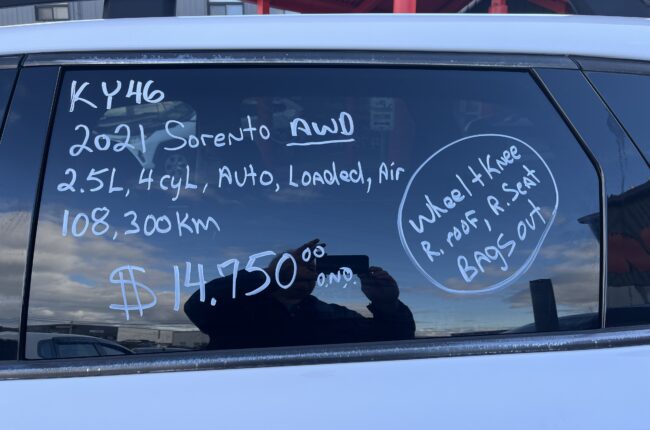 KY46
2021 Sorento AWD
2.5L, 4cyL, Auto, Loaded, Air
108,300km
$14.750⁰⁰ O.NO.
Wheel + Knee
R. roof, R. Seat
BAgs out